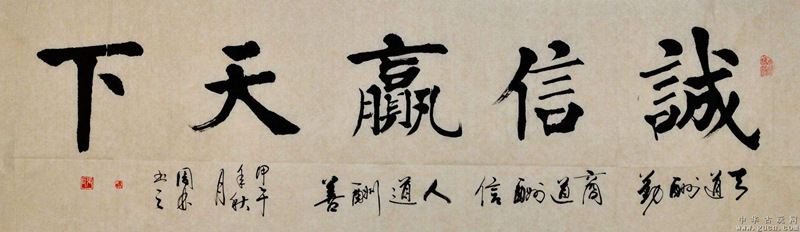 誠信贏天下
天道酬勤
商道酬信
人道酬善
甲午
年秋
月
中华古玩网
www.gucn.com